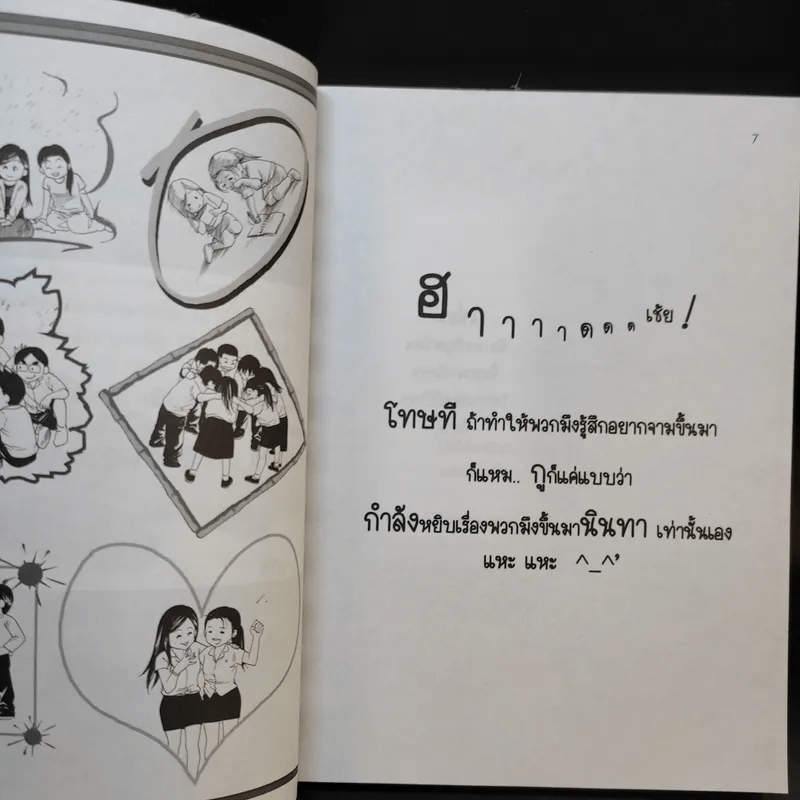 7
ฮ า า า า ด ด ด เช้ย !
โทษที ถ้าทำให้พวกมึงรู้สึกอยากจามขึ้นมา
ก็แหม.. กูก็แค่แบบว่า
กำลังหยิบเรื่องพวกมึงขึ้นมานินทา เท่านั้นเอง
แหะ แหะ ^_^'